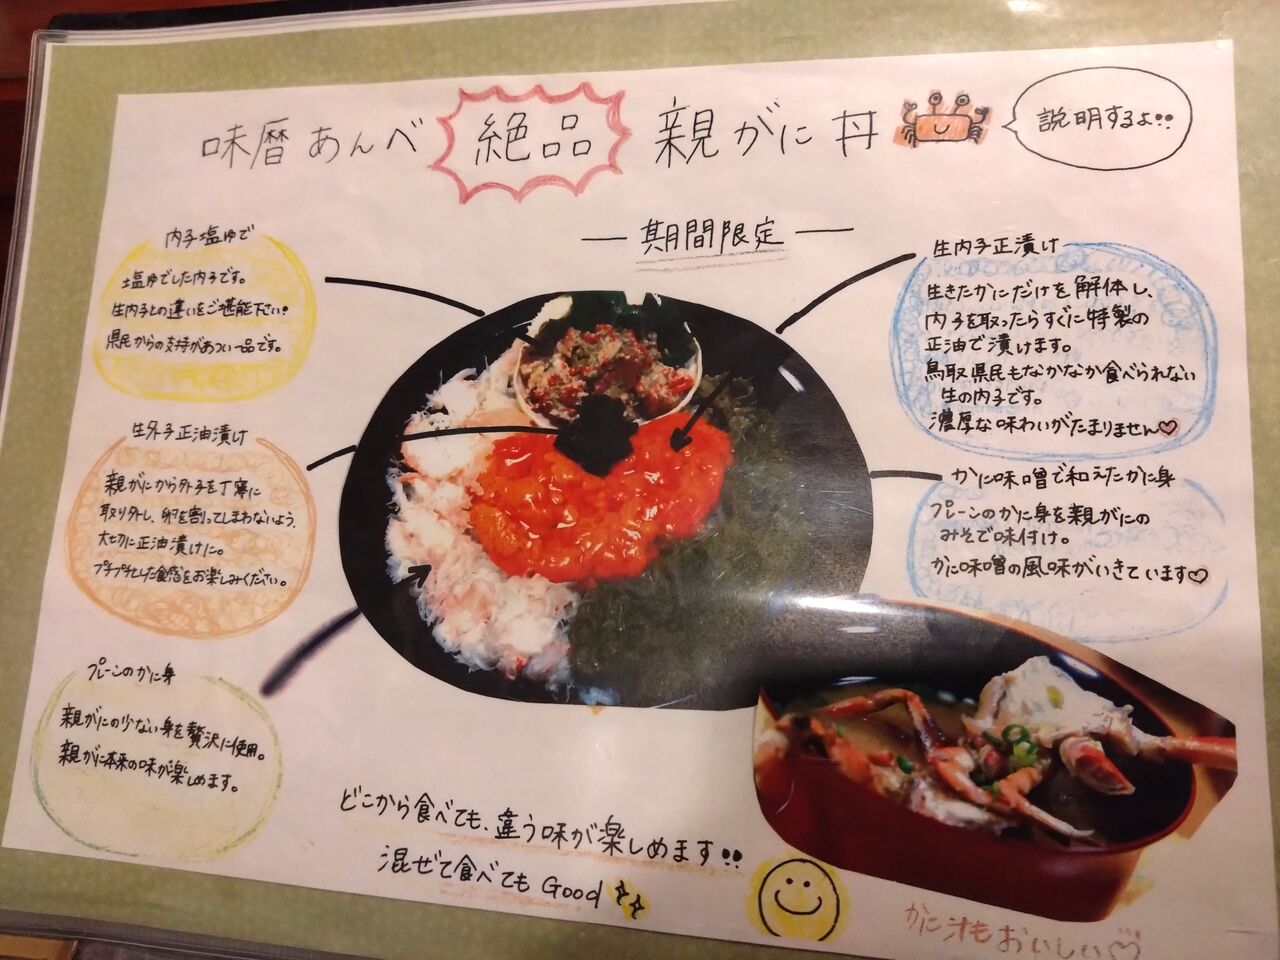 味暦あんべ 絶品 親がに丼
説明するよ!!
― 期間限定 ―
内子塩ゆで
塩ゆでした内子です。
生内子との違いをご堪能下さい!
県民からの支持があつい一品です。
生外子正油漬け
親がにから外子を丁寧に
取り外し、卵を割ってしまわないよう、
大切に正油漬けに。
プチプチとした食感をお楽しみください。
プレーンのかに身
親がにの少ない身を贅沢に使用。
親がに本来の味が楽しめます。
生内子正漬け
生きたかにだけを解体し、
内子を取ったらすぐに特製の
正油で漬けます。
鳥取県民もなかなか食べられない
生の内子です。
濃厚な味わいがたまりません♡
かに味噌で和えたかに身
プレーンのかに身を親がにの
みそで味付け。
かに味噌の風味がいきています♡
どこから食べても、違う味が楽しめます!!
混ぜて食べてもGood
かに汁もおいしい♡